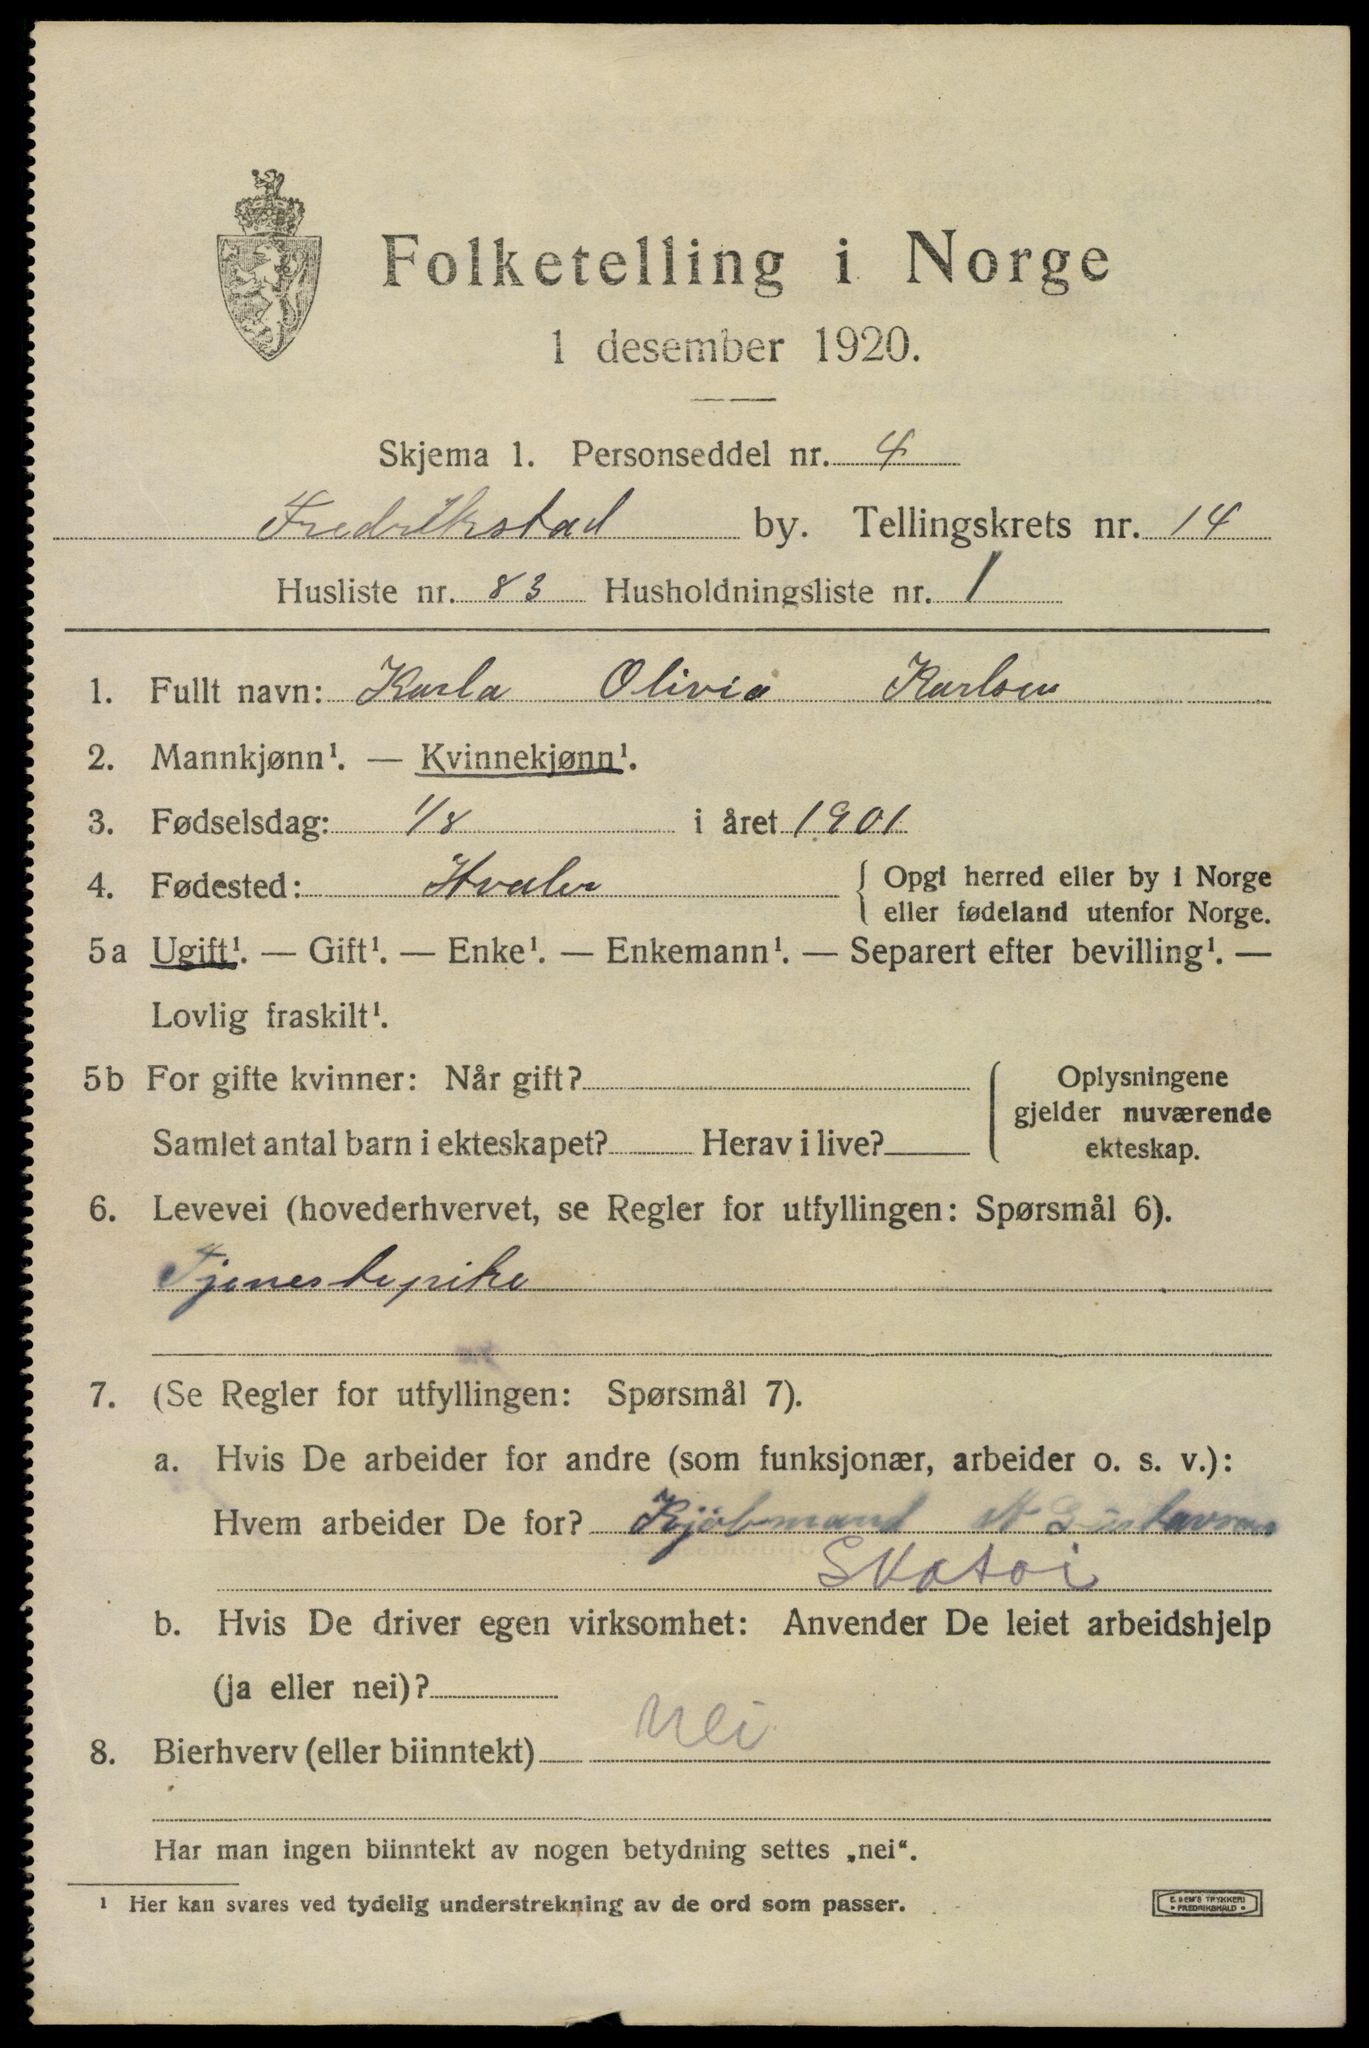 Folketelling i Norge
1 desember 1920.
Skjema 1. Personseddel nr. 4
Fredrikstad by. Tellingskrets nr. 14
Husliste nr. 83 Husholdningsliste nr. 1
1. Fullt navn: Karla Olivia Karlsen
2. Mannkjønn¹. — Kvinnekjønn¹.
3. Fødselsdag: 1/8 i året 1901
4. Fødested: Hvaler { Opgi herred eller by i Norge
eller fødeland utenfor Norge.
5a Ugift¹. — Gift¹. — Enke¹. — Enkemann¹. — Separert efter bevilling¹. —
Lovlig fraskilt¹.
5b For gifte kvinner: Når gift? { Oplysningene
gjelder nuværende
Samlet antal barn i ekteskapet? Herav i live? ekteskap.
6. Levevei (hovederhvervet, se Regler for utfyllingen: Spørsmål 6).
Tjenestepike
7. (Se Regler for utfyllingen: Spørsmål 7).
a. Hvis De arbeider for andre (som funksjonær, arbeider o. s. v.):
Hvem arbeider De for? Kjøbmand Gustavsen
Skotøi
b. Hvis De driver egen virksomhet: Anvender De leiet arbeidshjelp
(ja eller nei)?
8. Bierhverv (eller biinntekt) Nei
Har man ingen biinntekt av nogen betydning settes „nei“.
¹ Her kan svares ved tydelig understrekning av de ord som passer.
E. SEM'S TRYKKERI
• FREDRIKSHALD •